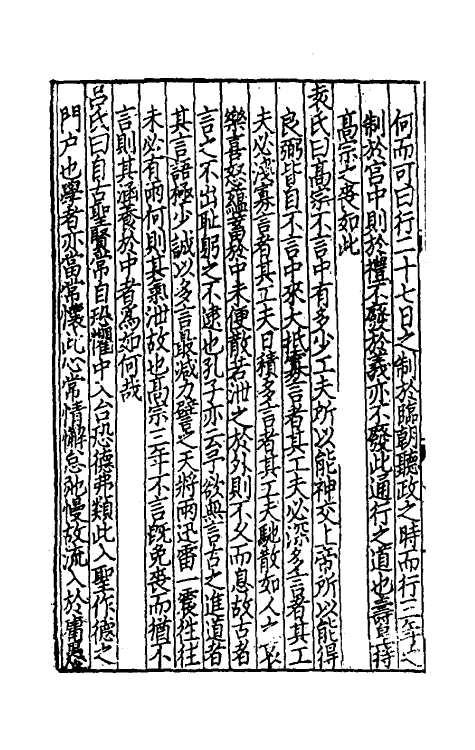 何而可曰行二十七日之制於臨朝聽政之時而行三年之
制於宮中則於禮不廢於義亦不廢此通行之道也壽皇持
高宗之喪如此
袁氏曰高宗不言中有多少工夫所以能神交上帝所以能得
良弼皆自不言中來大抵寡言者其工夫必深多言者其工
夫必淺寡言者其工夫日積多言者其工夫馳散如人
樂喜怒蘊蓄於中未便散若泄之於外則不久而息故古者
言之不出恥躬之不逮也孔子亦云予欲無言古之進道者
其言語極少誠以多言最減力譬之天將雨迅雷一震往往
未必有雨何則其氣泄故也高宗三年不言既免喪而猶不
言則其涵養於中者為如何哉
呂氏曰自古聖賢常自恐懼中入台恐德弗類此入聖作德之
門户也學者亦當常懷此心常情懈怠弛慢故流入於庸愚